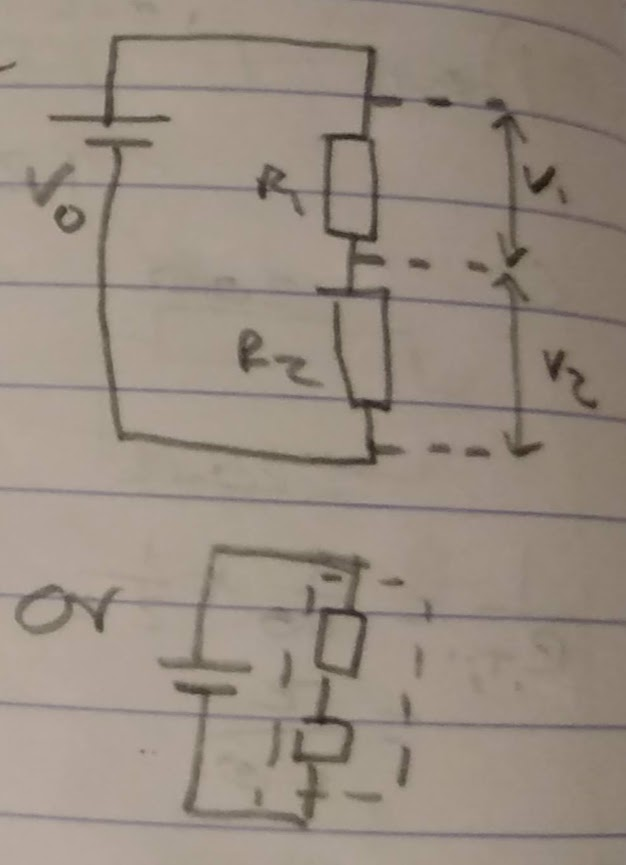 V0
R1
V1
R2
V2
Or